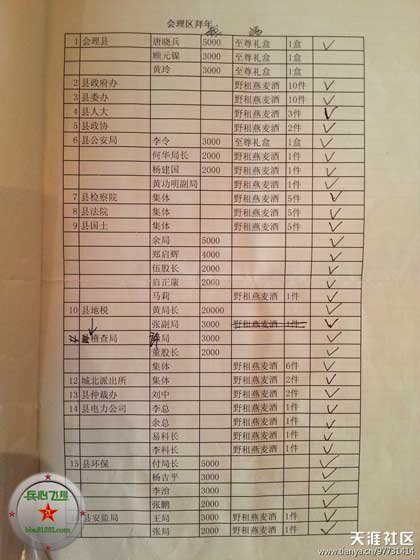 会理区拜年
酒
1 会理县 唐晓兵 5000 至尊礼盒 1盒 ✓
顾元锒 3000 至尊礼盒 1盒
黄玲 3000 至尊礼盒 1盒
2 县政府办 野租燕麦酒 10件 ✓
3 县委办 野租燕麦酒 10件 ✓
4 县人大 野租燕麦酒 3件 ✓
5 县政协 野租燕麦酒 2件 ✓
6 县公安局 李令 3000 至尊礼盒 1盒 ✓
何华局长 2000 野租燕麦酒 1件 ✓
杨建国 2000 野租燕麦酒 1件 ✓
黄功明副局 野租燕麦酒 1件 ✓
7 县检察院 集体 野租燕麦酒 5件 ✓
8 县法院 集体 野租燕麦酒 5件 ✓
9 县国土 集体 野租燕麦酒 5件 ✓
余局 5000 ✓
郑启辉 4000 ✓
伍股长 2000 ✓
启正康 2000 ✓
马莉 野租燕麦酒 1件 ✓
10 县地税 黄局长 20000 ✓
张副局 3000 野租燕麦酒 1件 ✓
稽查局 局 3000 ✓
董股长 2000 ✓
集体 野租燕麦酒 6件 ✓
12 城北派出所 集体 野租燕麦酒 2件 ✓
13 县仲裁办 刘中 野租燕麦酒 2件 ✓
14 县电力公司 李总 野租燕麦酒 1件 ✓
余总 野租燕麦酒 1件 ✓
易科长 野租燕麦酒 1件 ✓
李科长 野租燕麦酒 1件 ✓
15 县环保 付局长 5000 ✓
杨吉平 3000 ✓
李治 3000 ✓
张鹏 2000 ✓
县安监局 王局 3000 野租燕麦酒 1件 ✓
张局 2000 野租燕麦酒 1件 ✓
民心飞想
bbs.81281.com
天涯社区
www.tianya.cn/97731414